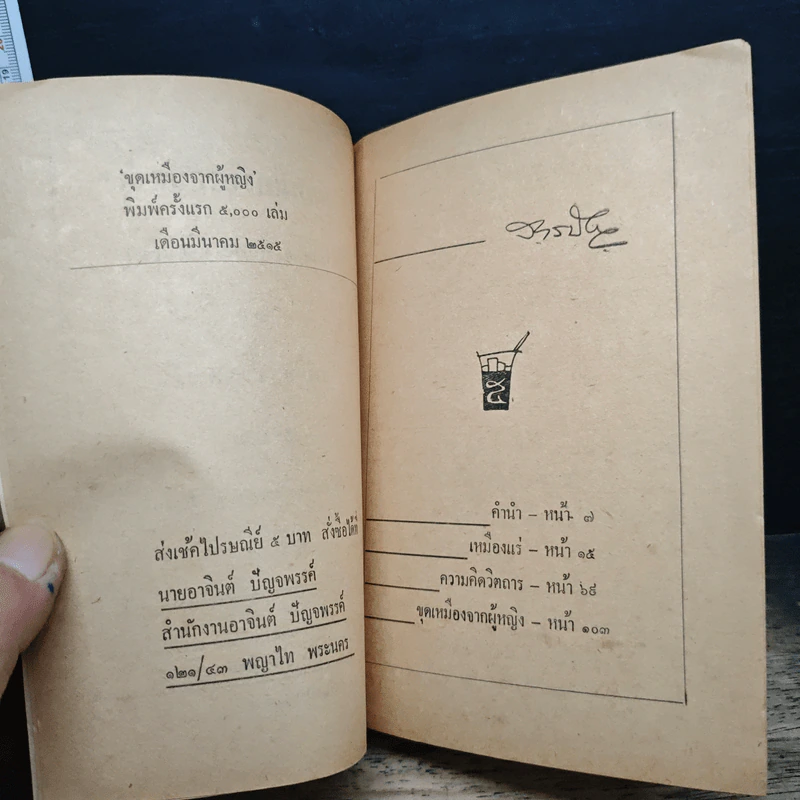 'ขุดเหมืองจากผู้หญิง'
พิมพ์ครั้งแรก ๕,๐๐๐ เล่ม
เดือนมีนาคม ๒๕๑๕
ส่งเช้คไปรษณีย์ ๕ บาท สั่งซื้อได้ที่
นายอาจินต์ ปัญจพรรค์
สำนักงานอาจินต์ ปัญจพรรค์
๑๒๑/๔๓ พญาไท พระนคร
สารบัญ
คำนำ – หน้า ๗
เหมืองแร่ – หน้า ๑๕
ความคิดวิตถาร – หน้า ๖๙
ขุดเหมืองจากผู้หญิง – หน้า ๑๐๓
19
20